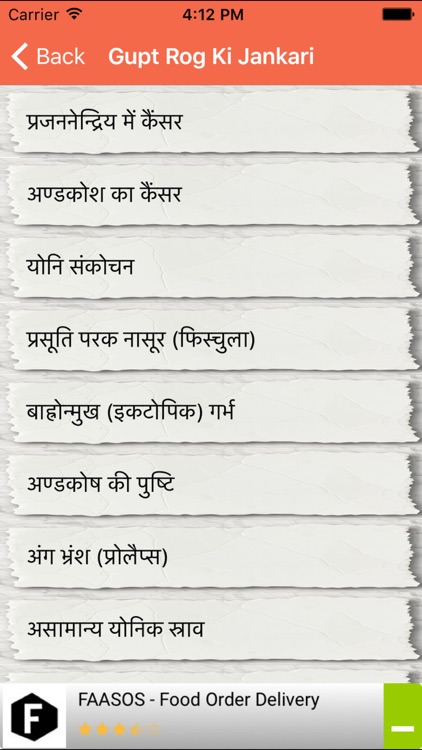 Carrier 4:12 PM
Back Gupt Rog Ki Jankari
प्रजननेन्द्रिय में कैंसर
अण्डकोश का कैंसर
योनि संकोचन
प्रसूति परक नासूर (फिस्चुला)
बाह्रोन्मुख (इकटोपिक) गर्भ
अण्डकोष की पुष्टि
अंग भ्रंश (प्रोलैप्स)
असामान्य योनिक स्त्राव
F FAASOS - Food Order Delivery